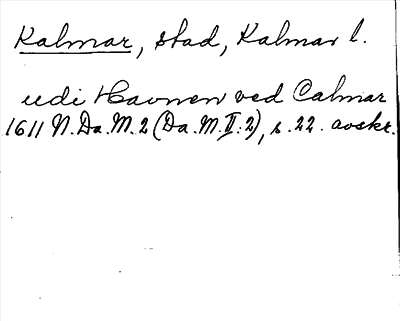 Kalmar, stad, Kalmar l.
udi Havnen ved Calmar
1611 N.Da.M.2 (Da.M.II:2), s.22. avskr.